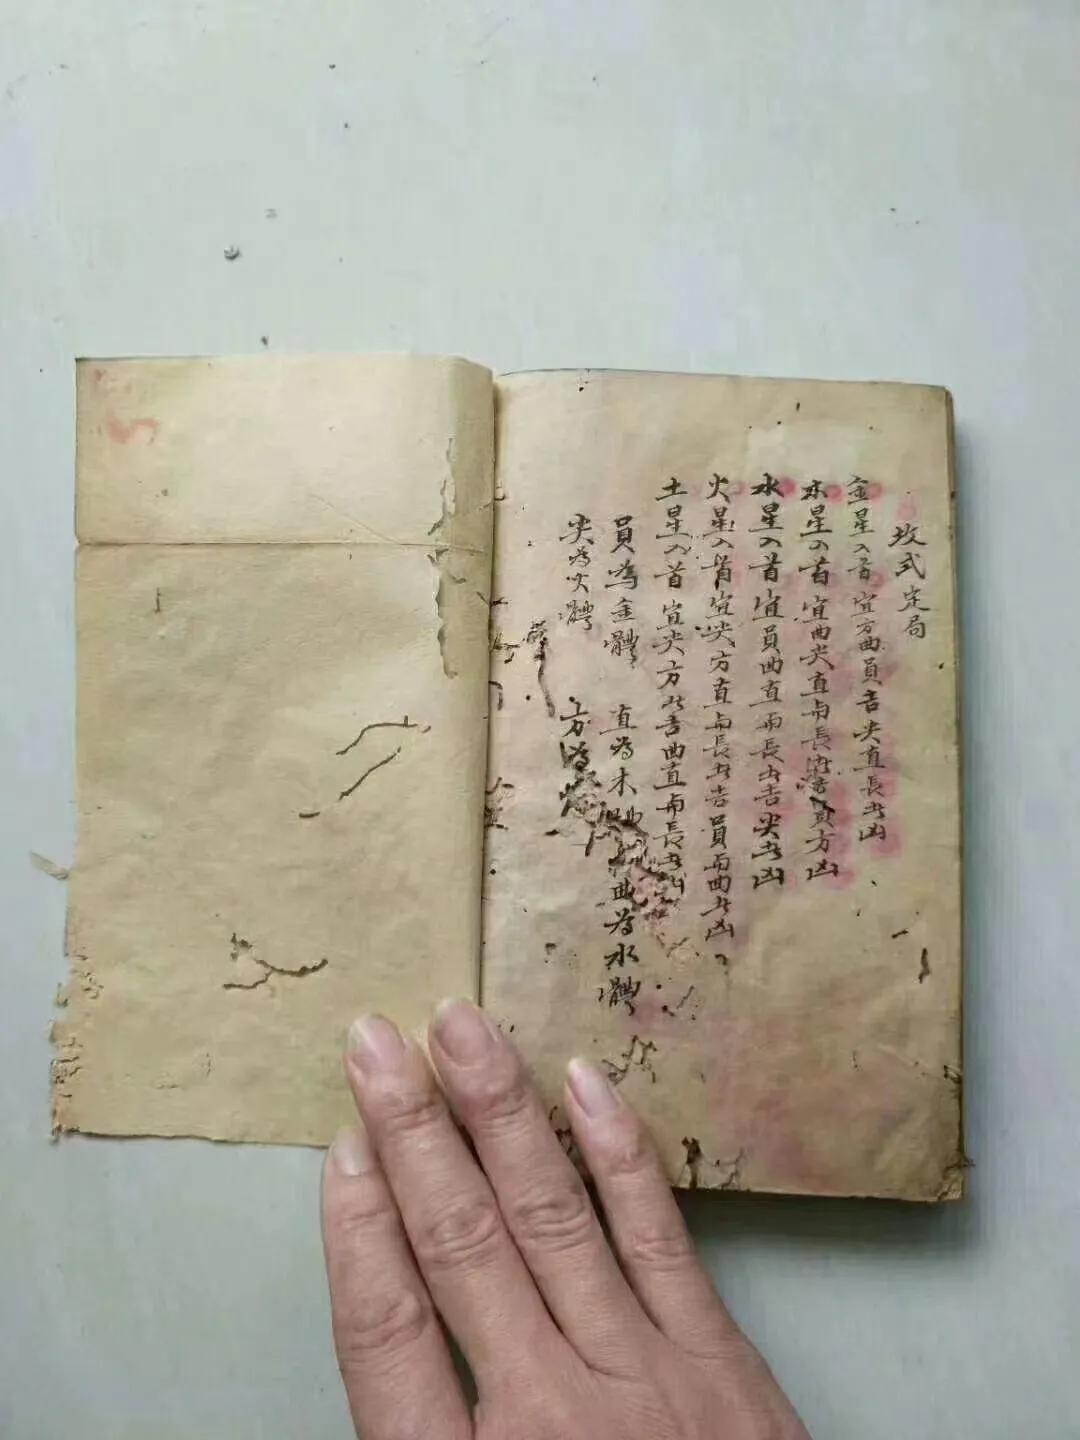 坟式定局
金星入首宜方曲員吉尖直長者凶
木星入首宜曲尖直而長者吉員方凶
水星入首宜員曲直而長者吉尖者凶
火星入首宜尖方直而長者吉員而曲者凶
土星入首宜尖方者吉曲直而長者凶
員為金體 直為木 曲為水體
尖為火體 方為